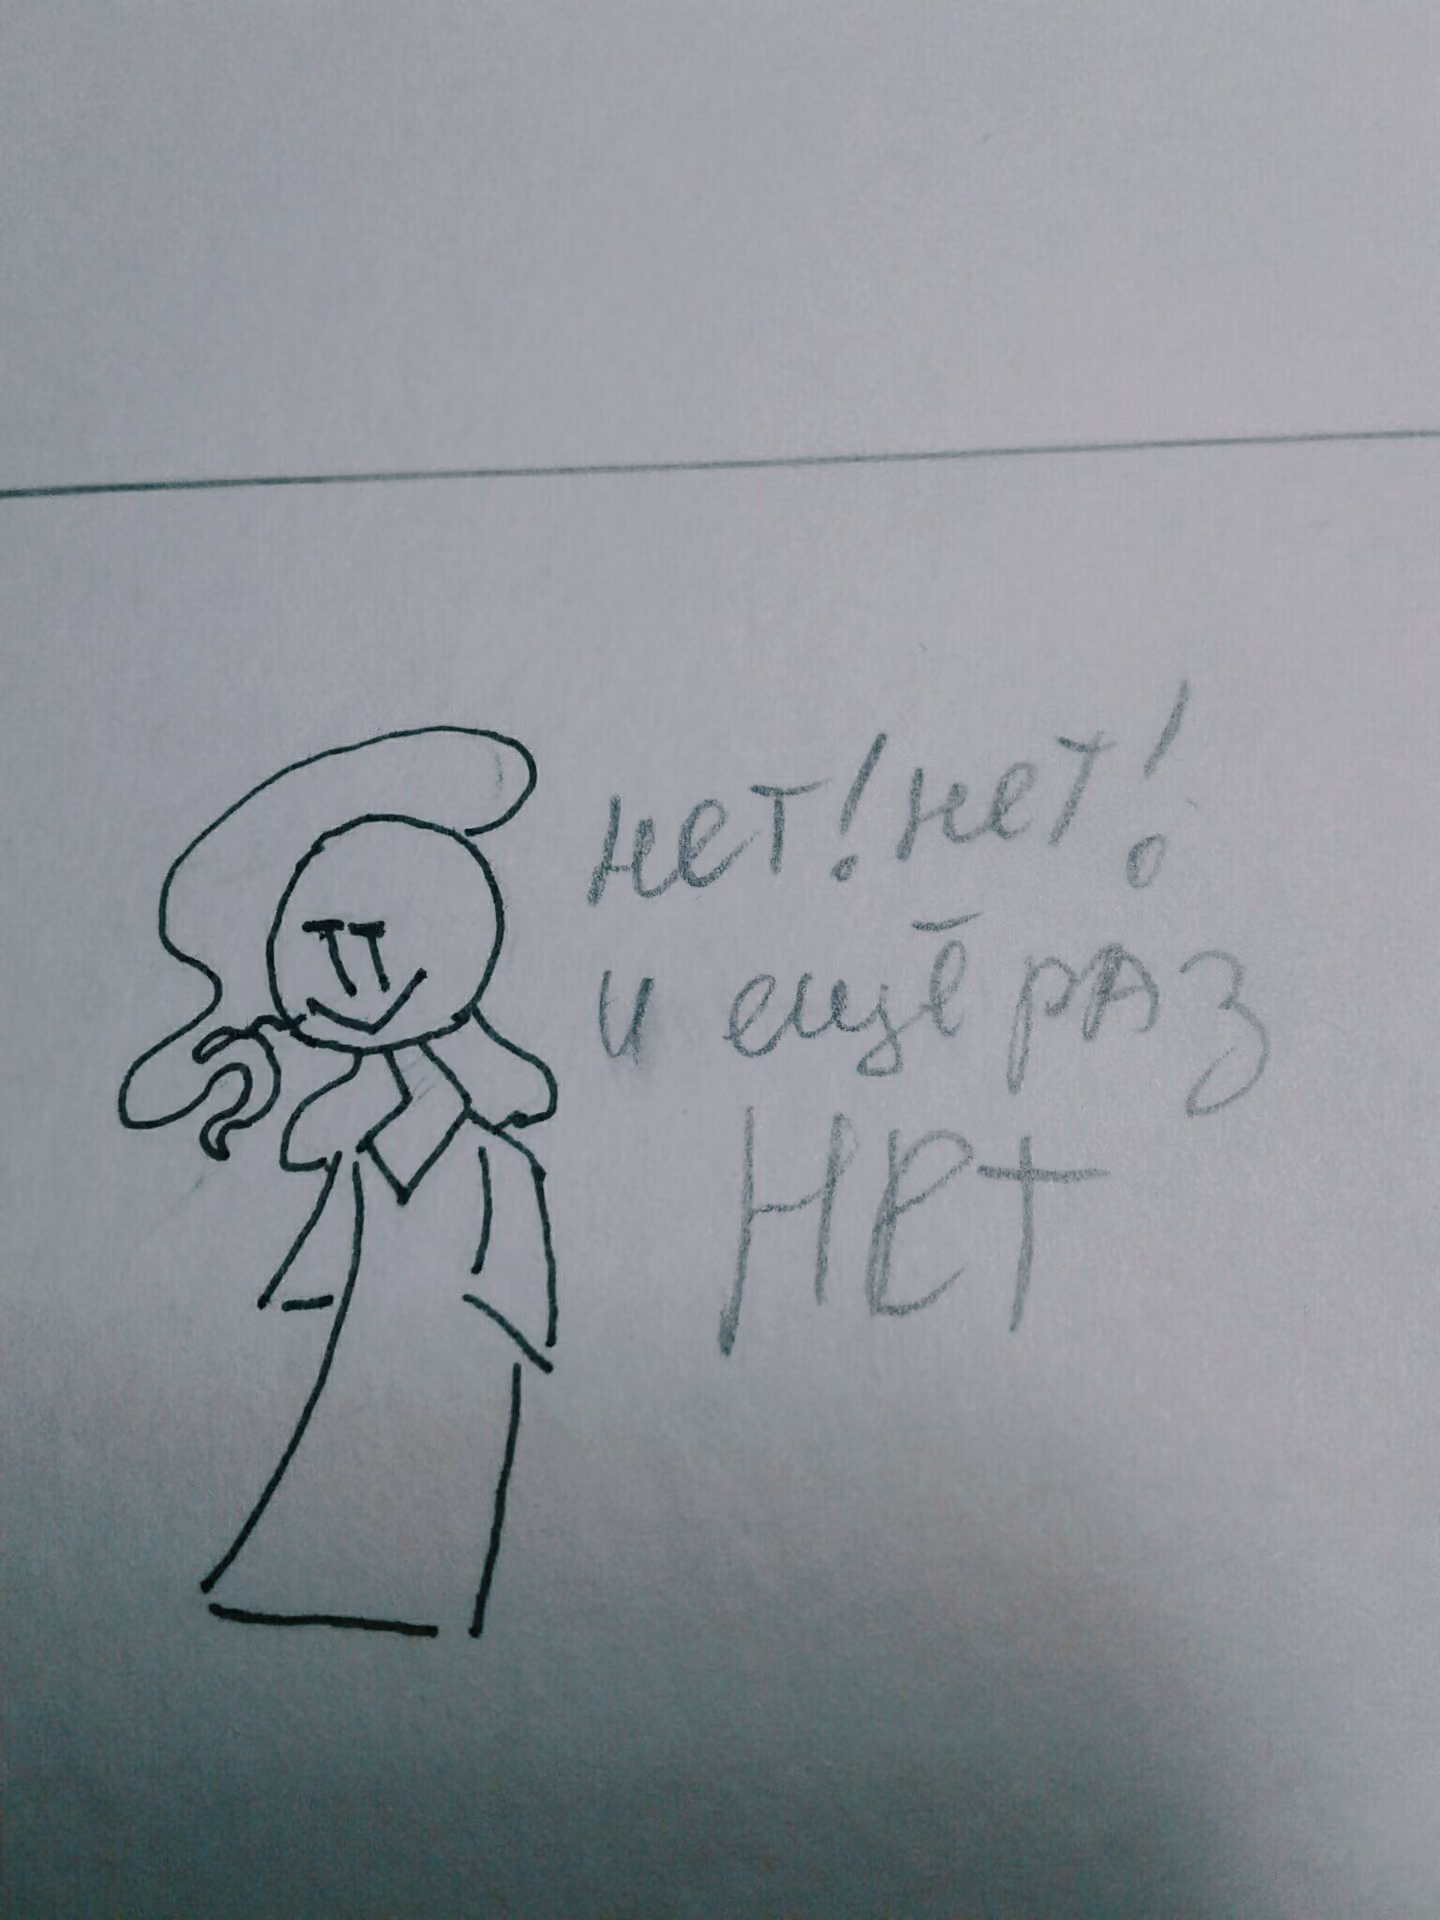 нет! нет!
и ещё раз
НЕТ